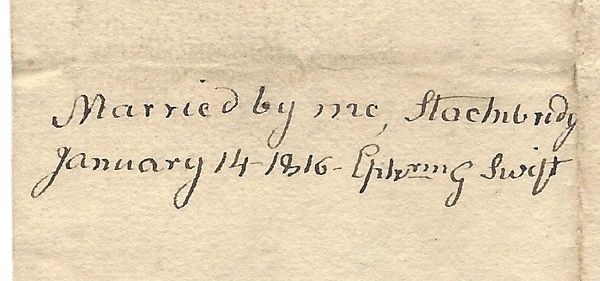 Married by me, Stockbridg
January 14 1816 - Ephrm G Swift